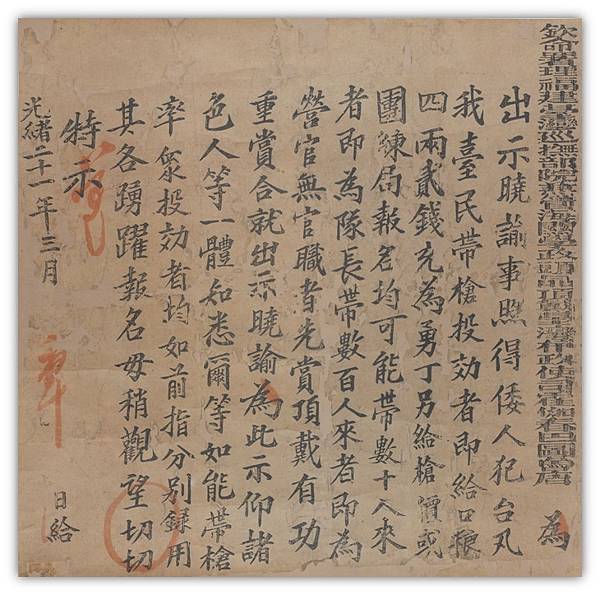 欽命署理福建臺灣巡撫部院兼管海關學政頭品頂戴臺灣布政使司霍伽春巴圖魯唐 為
出示曉諭事照得倭人犯台凡
我臺民帶槍投効者即給口糧
四兩貳錢充為勇丁另給槍價或
團練局報名均可能帶數十人來
者即為隊長帶數百人來者即為
營官無官職者先賞頂戴有功
重賞合就出示曉諭為此示仰諸
色人等一體知悉爾等如能帶槍
率衆投効者均如前指分別録用
其各踴躍報名毋稍觀望切切
特示
光緒二十一年三月 日給